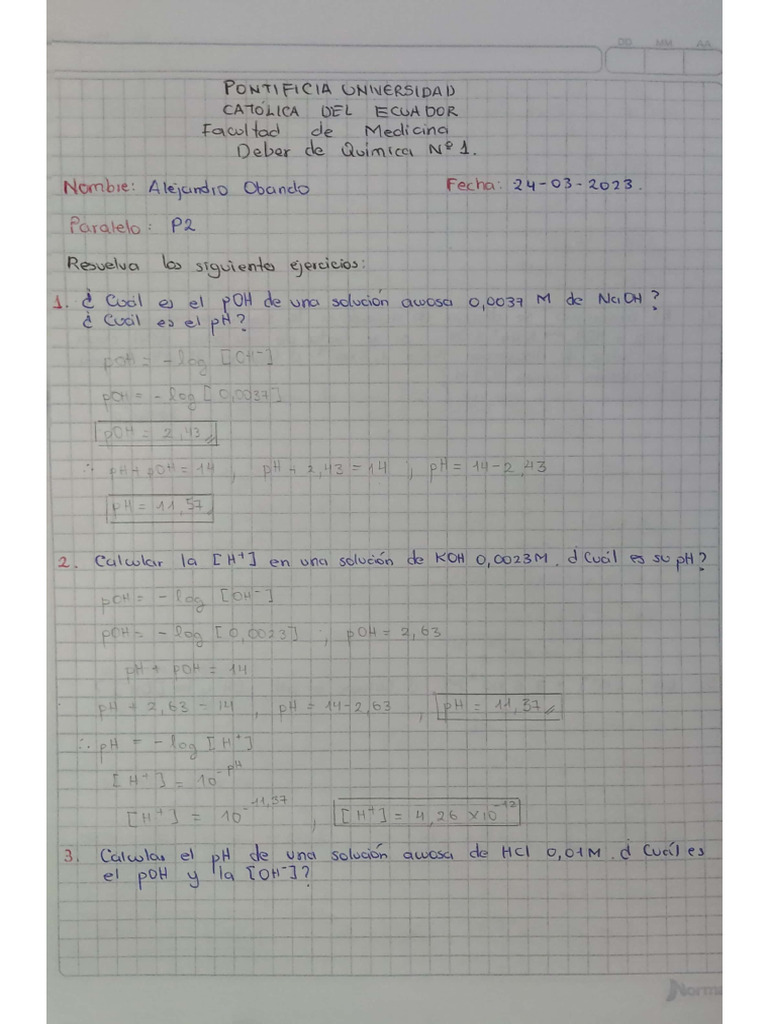 DD MM AA
PONTIFICIA UNIVERSIDAD
CATÓLICA DEL ECUADOR
Facultad de Medicina
Deber de Química Nº 1.
Nombre: Alejandro Obando Fecha: 24-03-2023.
Paralelo: P2
Resuelva los siguientes ejercicios:
1. ¿Cuál es el pOH de una solución acuosa 0,0037 M de NaOH?
¿Cuál es el pH?
pOH = -log [OH⁻]
pOH = -log [0,0037]
pOH = 2,43
∴ pH + pOH = 14 , pH + 2,43 = 14 , pH = 14-2,43
pH = 11,57
2. Calcular la [H⁺] en una solución de KOH 0,0023M. ¿Cuál es su pH?
pOH = -log [OH⁻]
pOH = -log [0,0023] , pOH = 2,63
pH + pOH = 14
pH + 2,63 = 14 , pH = 14-2,63 , pH = 11,37
∴ pH = -log [H⁺]
[H⁺] = 10⁻ᵖᴴ
[H⁺] = 10⁻¹¹,³⁷ , [H⁺] = 4,26 x10⁻¹²
3. Calcular el pH de una solución acuosa de HCl 0,01M. ¿Cuál es
el pOH y la [OH⁻]?
Norma